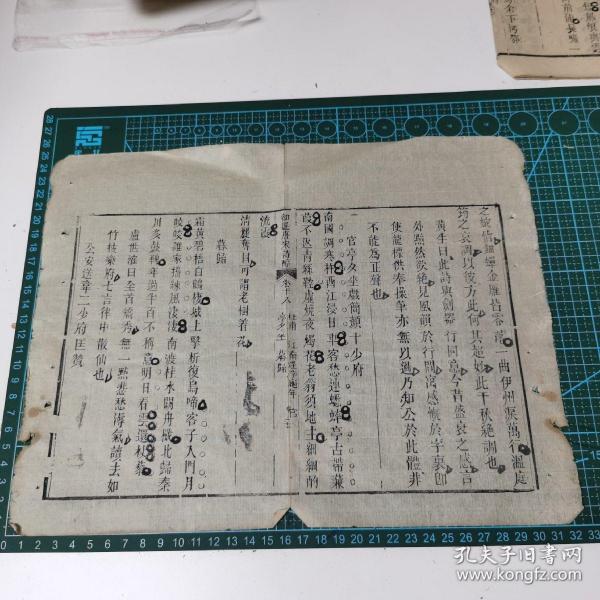 鈿蟬金雁皆零落一曲伊州淚萬行溫庭
筠之哀調以彼方此何其超妙此千秋絶調也
黃生曰此詩與劍器行同意今昔盛衰之感言
外黯然欲絶見風韻於行間寓感慨於字裏即
使龍標供奉操筆亦無以過乃知公於此體非
不能為正聲也
官亭夕坐戲簡顏十少府
南國調寒杵西江浸日車客愁連蟋蟀亭古帶蒹
葭不返青絲鞚虛燒夜燭花老翁須地主細細酌
御選唐宋詩醇 卷十八 杜甫 江南逢李龜年 官
亭夕坐 暮歸
流霞
清麗奪目可謂老樹着花
暮歸
霜黃碧梧白鶴棲城上擊柝復烏啼客子入門月
皎皎誰家搗練風淒淒南渡桂水闕舟楫北歸秦
川多鼓鼙年過半百不稱意明日看雲還杖藜
盧世㴶曰全首矯秀無一點悲愁濤氣讀去如
竹枝樂府七言律中散仙也
公安送韋二少府匡贊
孔夫子旧书网
www.kongfz.com